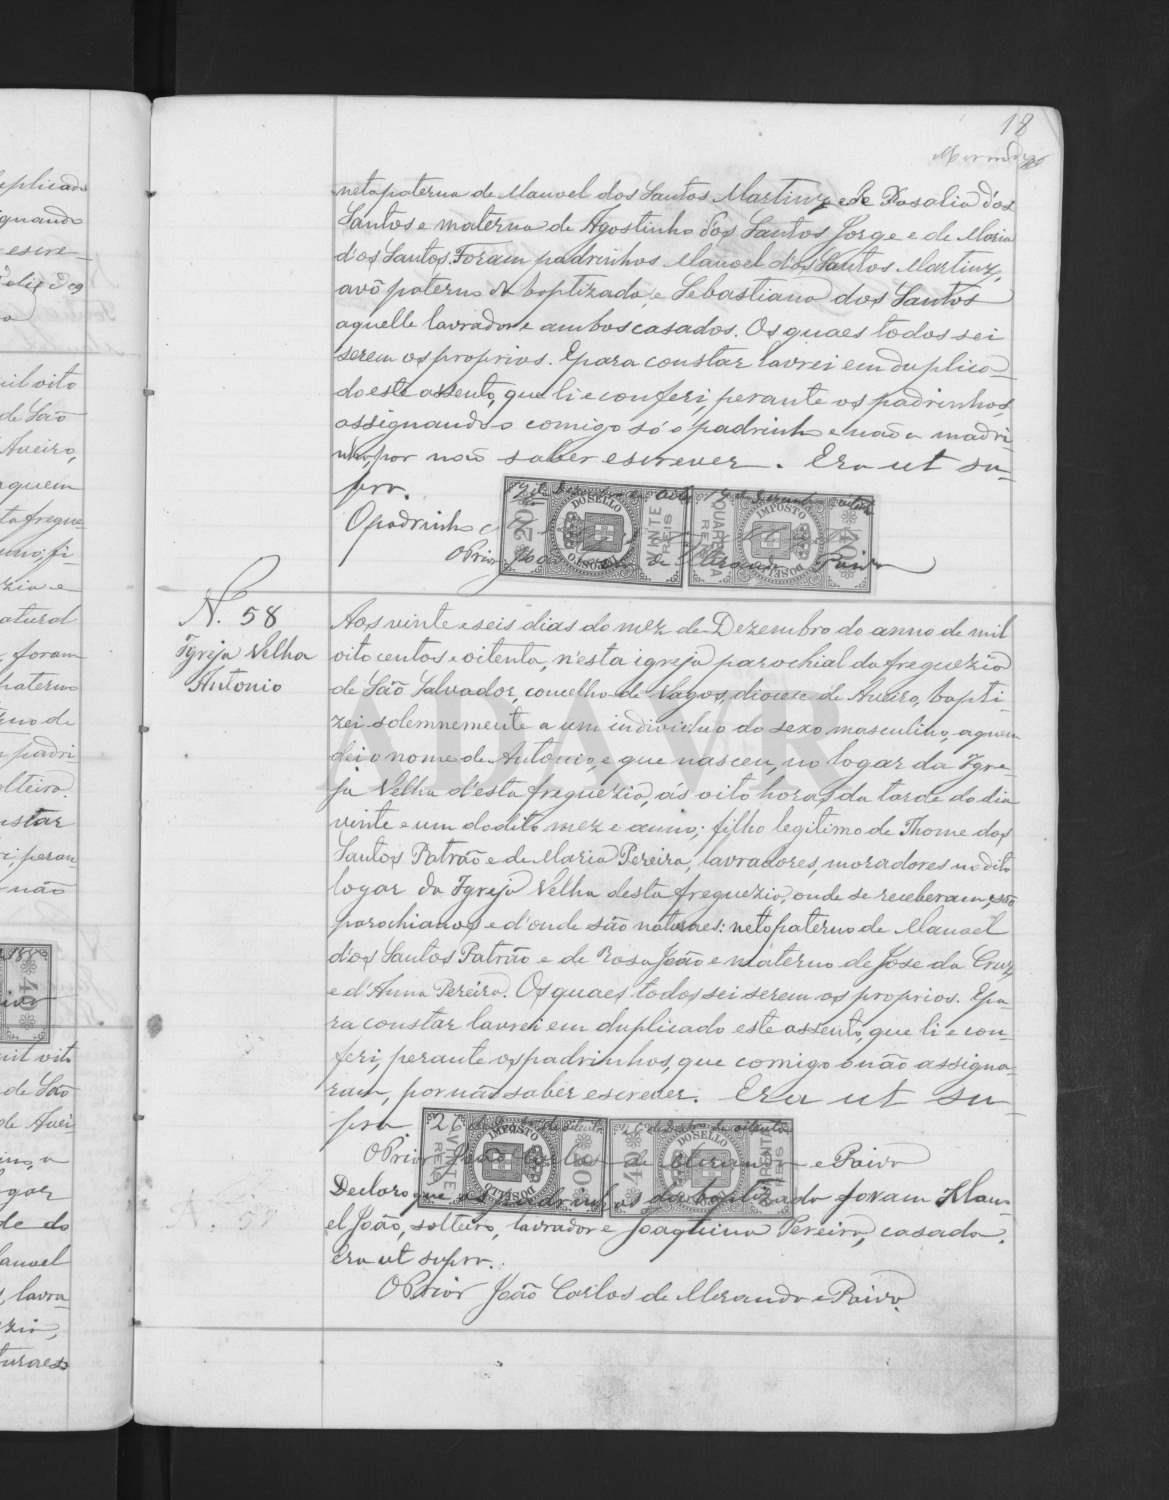 18
neta paterna de Manoel dos Santos Martins, e de Rosalia d'os
Santos e materna de Agostinho d'os Santos Jorge e de Maria
d'os Santos. Foram padrinhos Manoel d'os Santos Martins,
avô paterno do baptizado, e Sebastiana dos Santos
aquelle lavrador e ambos casados. Os quaes todos sei
serem os proprios. E para constar lavrei em duplica-
do este assento, que li e conferi, perante os padrinhos,
assignando comigo só o padrinho e não a madri
nha, por não saber escrever. Era ut su-
pra.
O padrinho
O Prior de Miranda e Paiva
IMPOSTO DO SELLO 20 VINTE REIS
IMPOSTO DO SELLO 40 QUARENTA REIS
N. 58
Igreja Velha
Antonio
Aos vinte e seis dias do mez de Dezembro do anno de mil
oito centos e oitenta, n'esta igreja parochial da freguezia
de São Salvador, concelho de Vagos, diocese de Aveiro, bapti-
zei solemnemente a um individuo do sexo masculino, a quem
dei o nome de Antonio, e que nasceu, no logar da Igre-
ja Velha d'esta freguezia, ás oito horas da tarde do dia
vinte e um do dito mez e anno; filho legitimo de Thome dos
Santos Patrão e de Maria Pereira, lavradores, moradores no dito
logar da Igreja Velha desta freguezia, onde se receberam, são
parochianos e d'onde são naturaes: neto paterno de Manoel
d'os Santos Patrão e de Rosa João e materno de Jose da Cruz
e d'Anna Pereira. Os quaes todos sei serem os proprios. E pa-
ra constar lavrei em duplicado este assento, que li e con-
feri, perante os padrinhos, que comigo não assigna-
ram, por não saber escrever. Era ut su-
pra
IMPOSTO DO SELLO 20 VINTE REIS
IMPOSTO DO SELLO 40 QUARENTA REIS
O Prior João Carlos de Miranda e Paiva
Declaro que os padrinhos do baptizado foram Mano-
el João, solteiro, lavrador e Joaquina Pereira, casada.
Era ut supra.
O Prior João Carlos de Miranda e Paiva.
ADAVR